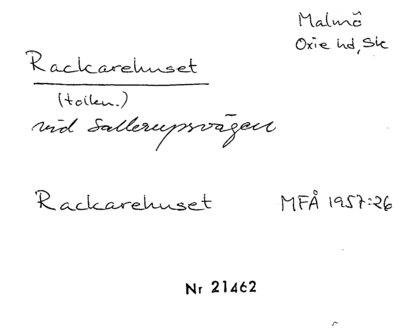 Malmö
Oxie hd, Sk
Rackarehuset
(toilen.)
vid Sallerupsvägen
Rackarehuset MFÅ 1957:26
Nr 21462